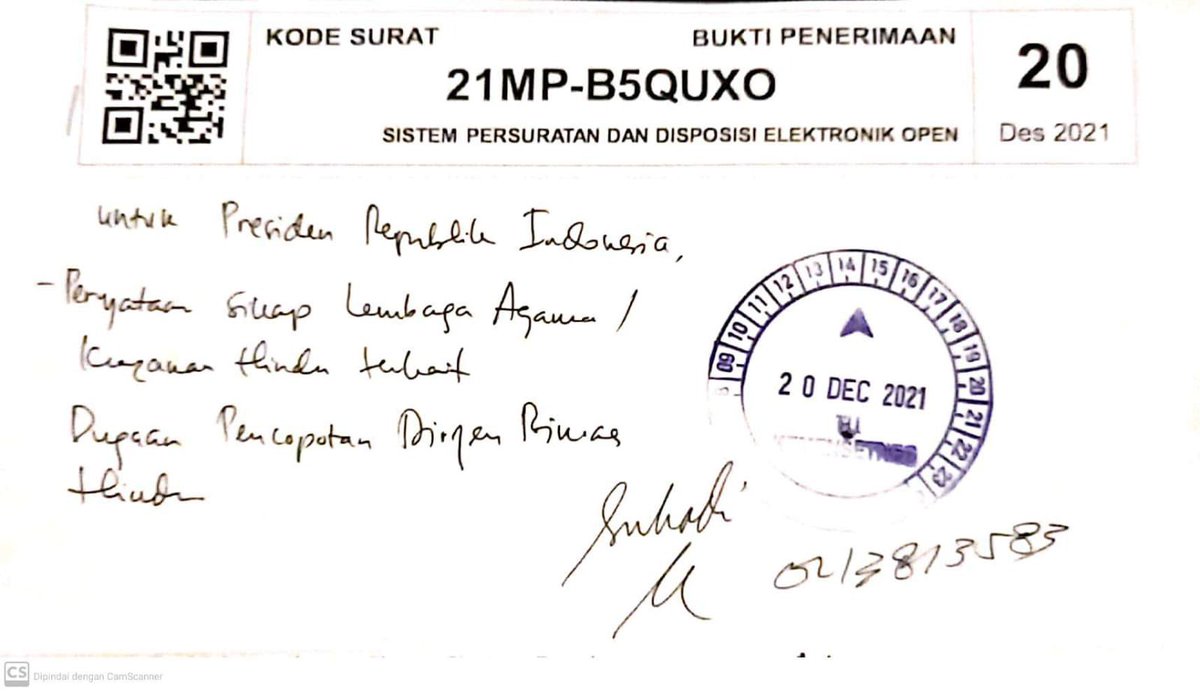 KODE SURAT
BUKTI PENERIMAAN
21MP-B5QUXO
SISTEM PERSURATAN DAN DISPOSISI ELEKTRONIK OPEN
20
Des 2021
untuk Presiden Republik Indonesia,
- Pernyataan sikap Lembaga Agama /
Hindu terkait
Dugaan Pencopotan Dirjen Bimas
Hindu
09 10 11 12 13 14 15 16 17 18 19 20 21 22 23
20 DEC 2021
TU
Suhadi
0213813583
CS Dipindai dengan CamScanner